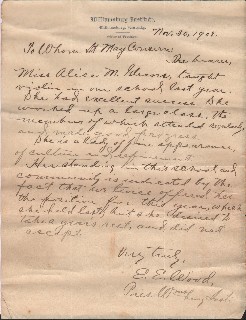 Williamsburg Institute,
Nov. 30, 1901.
To Whom It May Concern
Miss Alice M. taught
violin in our school last year.
She had excellent success. She
worked up a large class, the
members of which attended regularly
and made good progress
She is a lady of fine appearance,
of culture and refinement.
Her standing in this school and
community is indicated by the
fact that we twice offered her
the position for this year, which
she held last, but she desired to
take a years rest, and did not
accept.
Very truly,
E. E. Wood,
Pres.